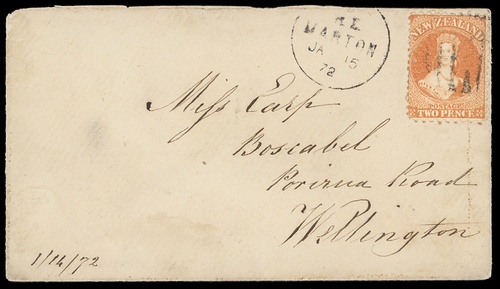 N.Z.
MARTON
JA 15
72
NEW ZEALAND
POSTAGE
TWO PENCE
Miss Earp
Boscabel
Porirua Road
Wellington
1/14/72